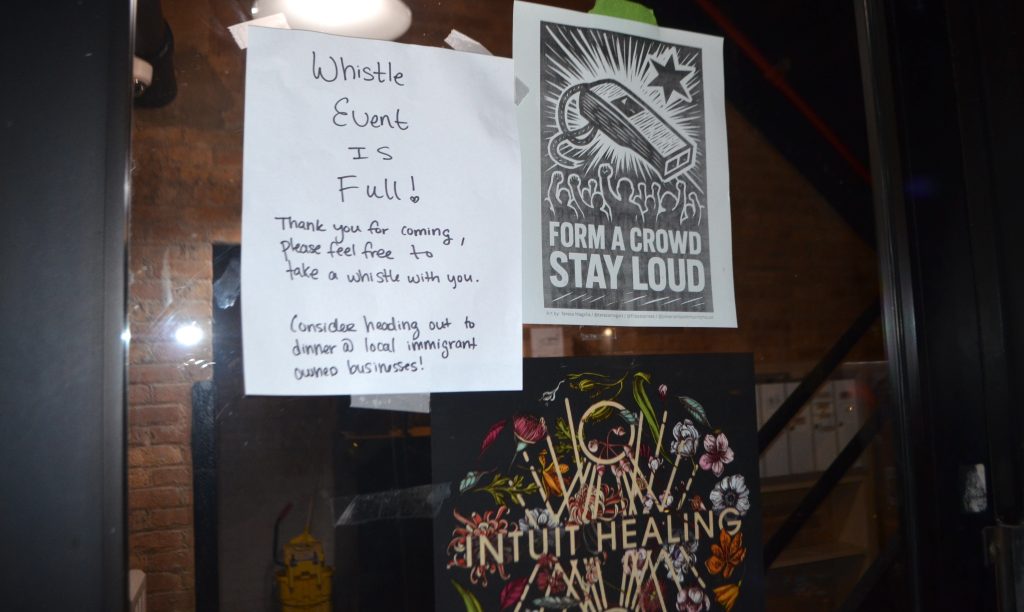 Whistle
Event
IS
Full!
Thank you for coming,
please feel free to
take a whistle with you.
Consider heading out to
dinner @ local immigrant
owned businesses!
FORM A CROWD
STAY LOUD
Art by:
INTUIT HEALING